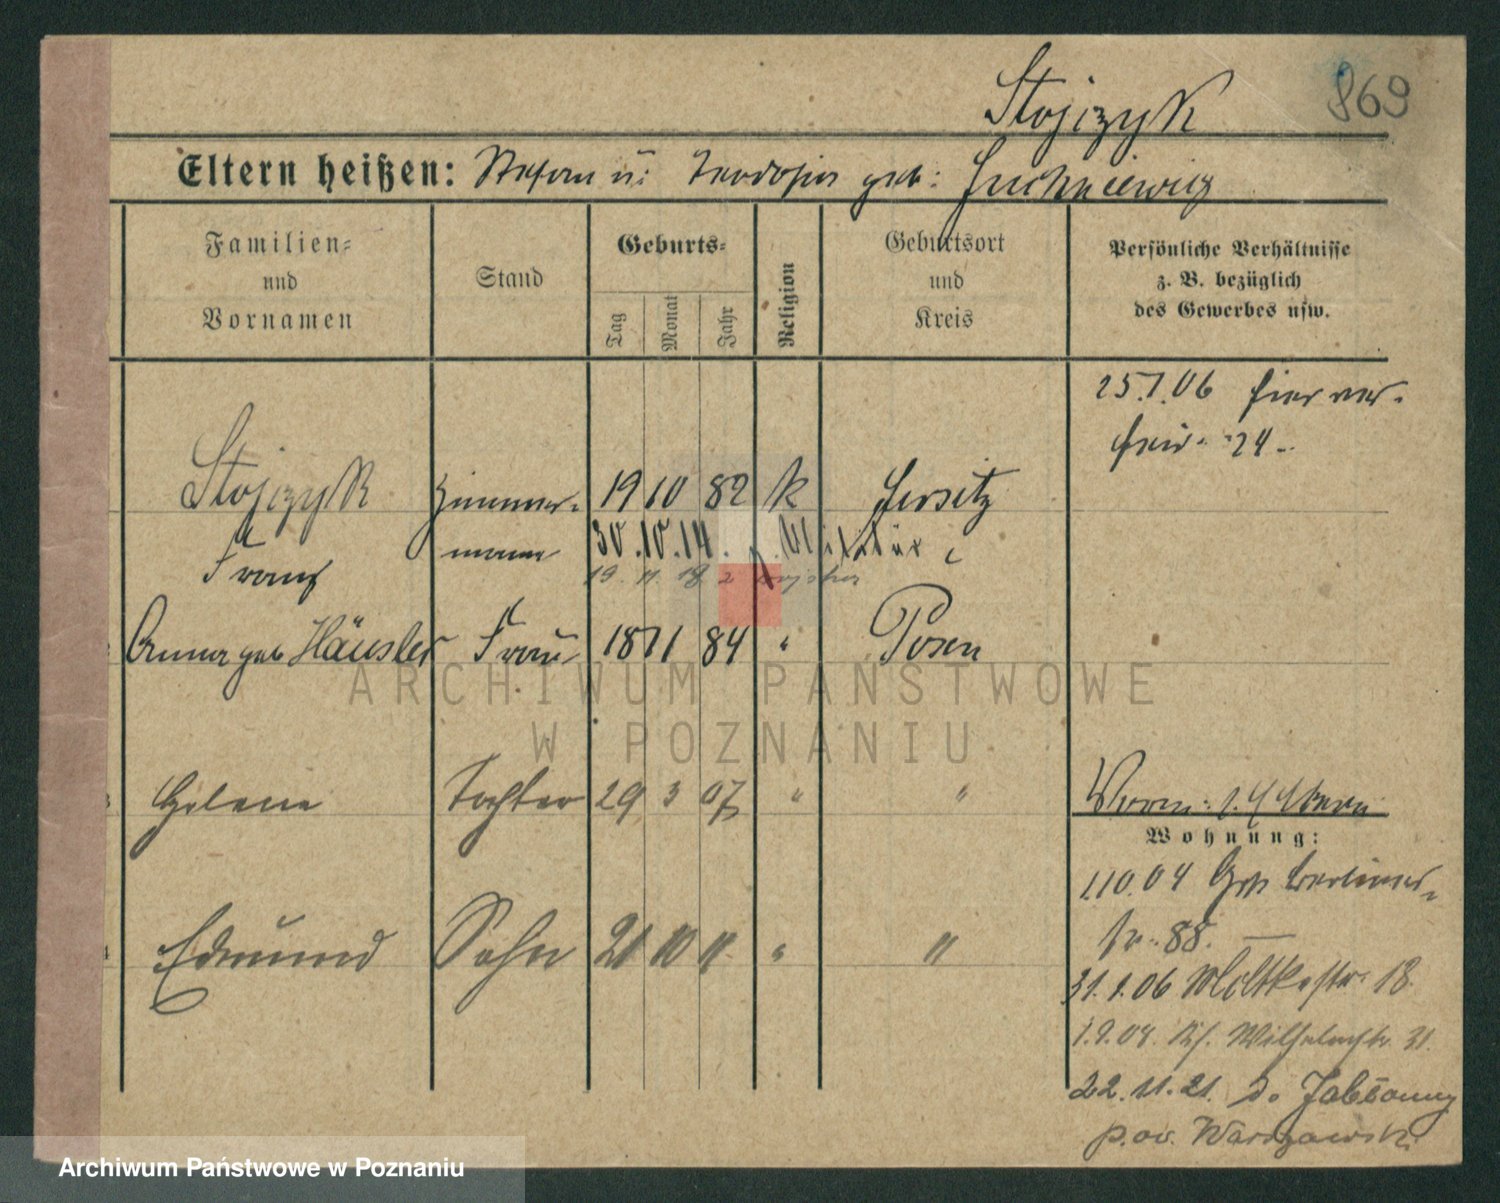 869
Stojczyk
Eltern heißen: Stefan u: Teodosia geb: Juchniewicz
Familien-
und
Vornamen
Stand
Geburts-
Tag
Monat
Jahr
Religion
Geburtsort
und
Kreis
Persönliche Verhältnisse
z. B. bezüglich
des Gewerbes usw.
25.1.06 hier ver-
heir. 24
Stojczyk
Franz
Zimmer-
mann
19 10 82 k Jersitz
30.10.14. z. Militär
19. 11. 18 z wojska
Anna geb Häusler Frau 18 11 84 " Posen
Helene Tochter 29 3 07 " "
Edmund Sohn 21 10 11 " "
Wohnung:
1.10.04 Berliner-
str. 88.
31.1.06 Moltkestr. 18.
1.9.08. Wilhelmstr. 31.
22.11.21. do Jabłonny
pow. Warszawski
ARCHIWUM PAŃSTWOWE
W POZNANIU
Archiwum Państwowe w Poznaniu